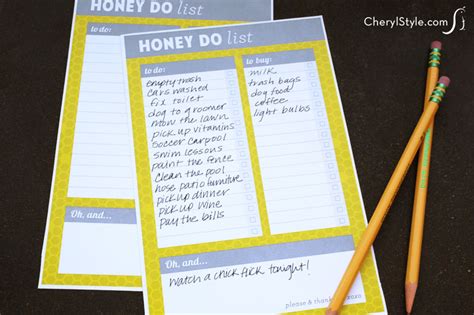 CherylStyle.com
HONEY DO list
to do:
Oh, and...
HONEY DO list
to do:
empty trash
cars washed
fix toilet
dog to groomer
mow the lawn
pick up vitamins
soccer carpool
swim lessons
paint the fence
clean the pool
hose patio furniture
pick up dinner
pick up wine
pay the bills
to buy:
milk
trash bags
dog food
coffee
light bulbs
Oh, and...
watch a chick flick tonight!
please & thank
xoxo